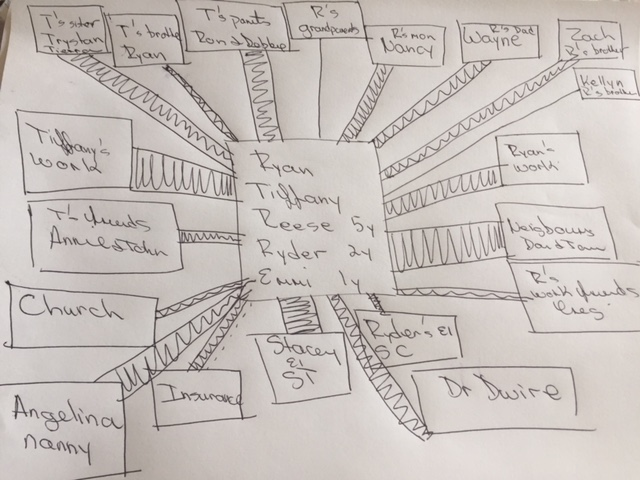 T's sister
Trystan
Tiernan
T's brother
Ryan
T's parents
Ron & Debbie
R's
grandparents
R's mom
Nancy
R's Dad
Wayne
Zach
R's brother
Kellyn
R's brother
Tiffany's
work
Ryan's
work
Ryan
Tiffany
Reese 5y
Ryder 2y
Emmi 1y
T's friends
Annie & John
Neighbours
R's
work friends
Greg
Church
Stacey
EI
ST
Ryder's EI
SC
Dr Dwire
Insurance
Angelina
nanny